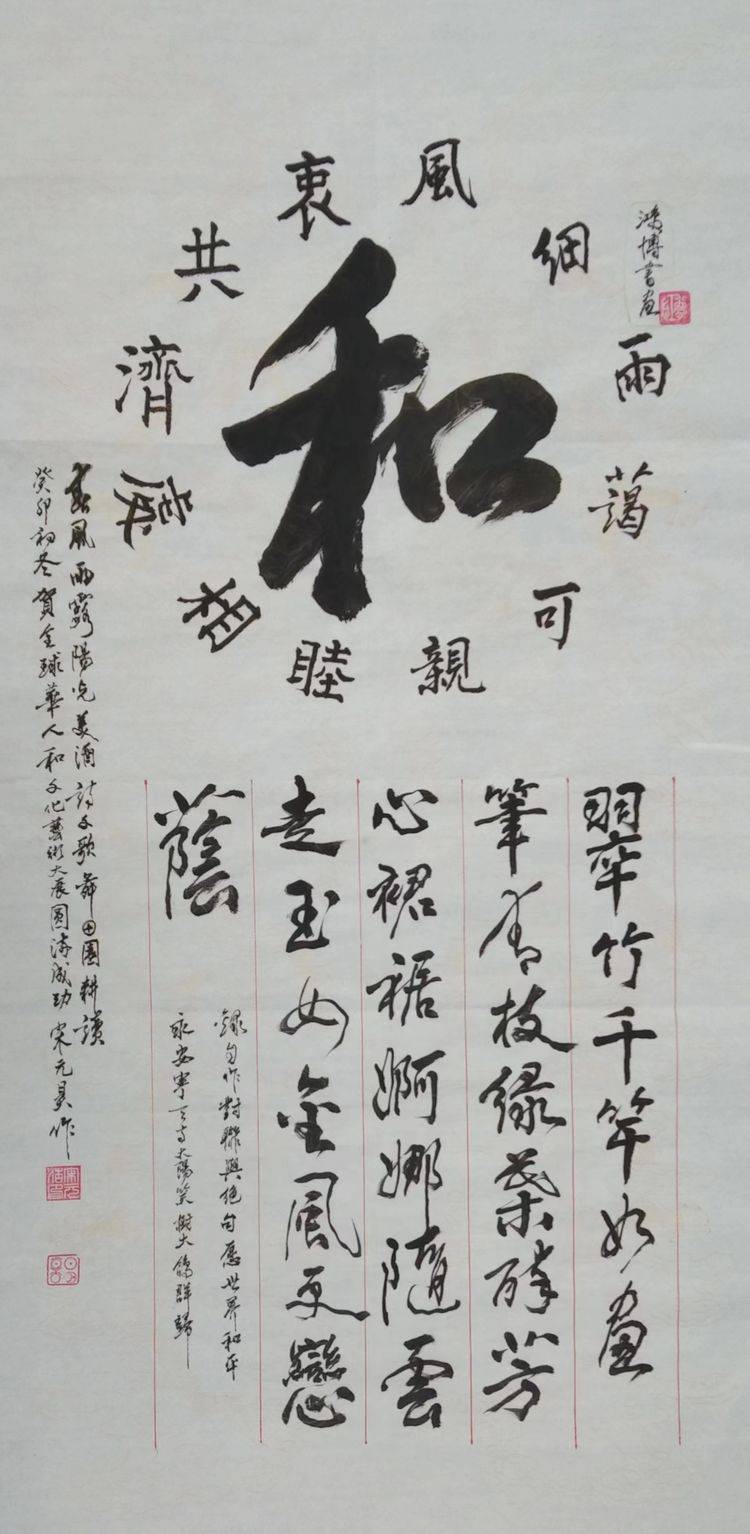 鴻博書画
和
風細雨
藹可親
睦相處
衷共濟
翠竹千竿如畫
筆青枝綠葉醉芳
心裙裾婀娜隨雲
走玉女金風更戀
蔭
錄句作對聯與絕句愿世界和平
永安寧太陽笑樹大鳥群歸
春風雨露陽光美酒詩文歌舞田園耕讀
癸卯初冬賀全球華人和文化藝術大展圓滿成功 宋元昊作